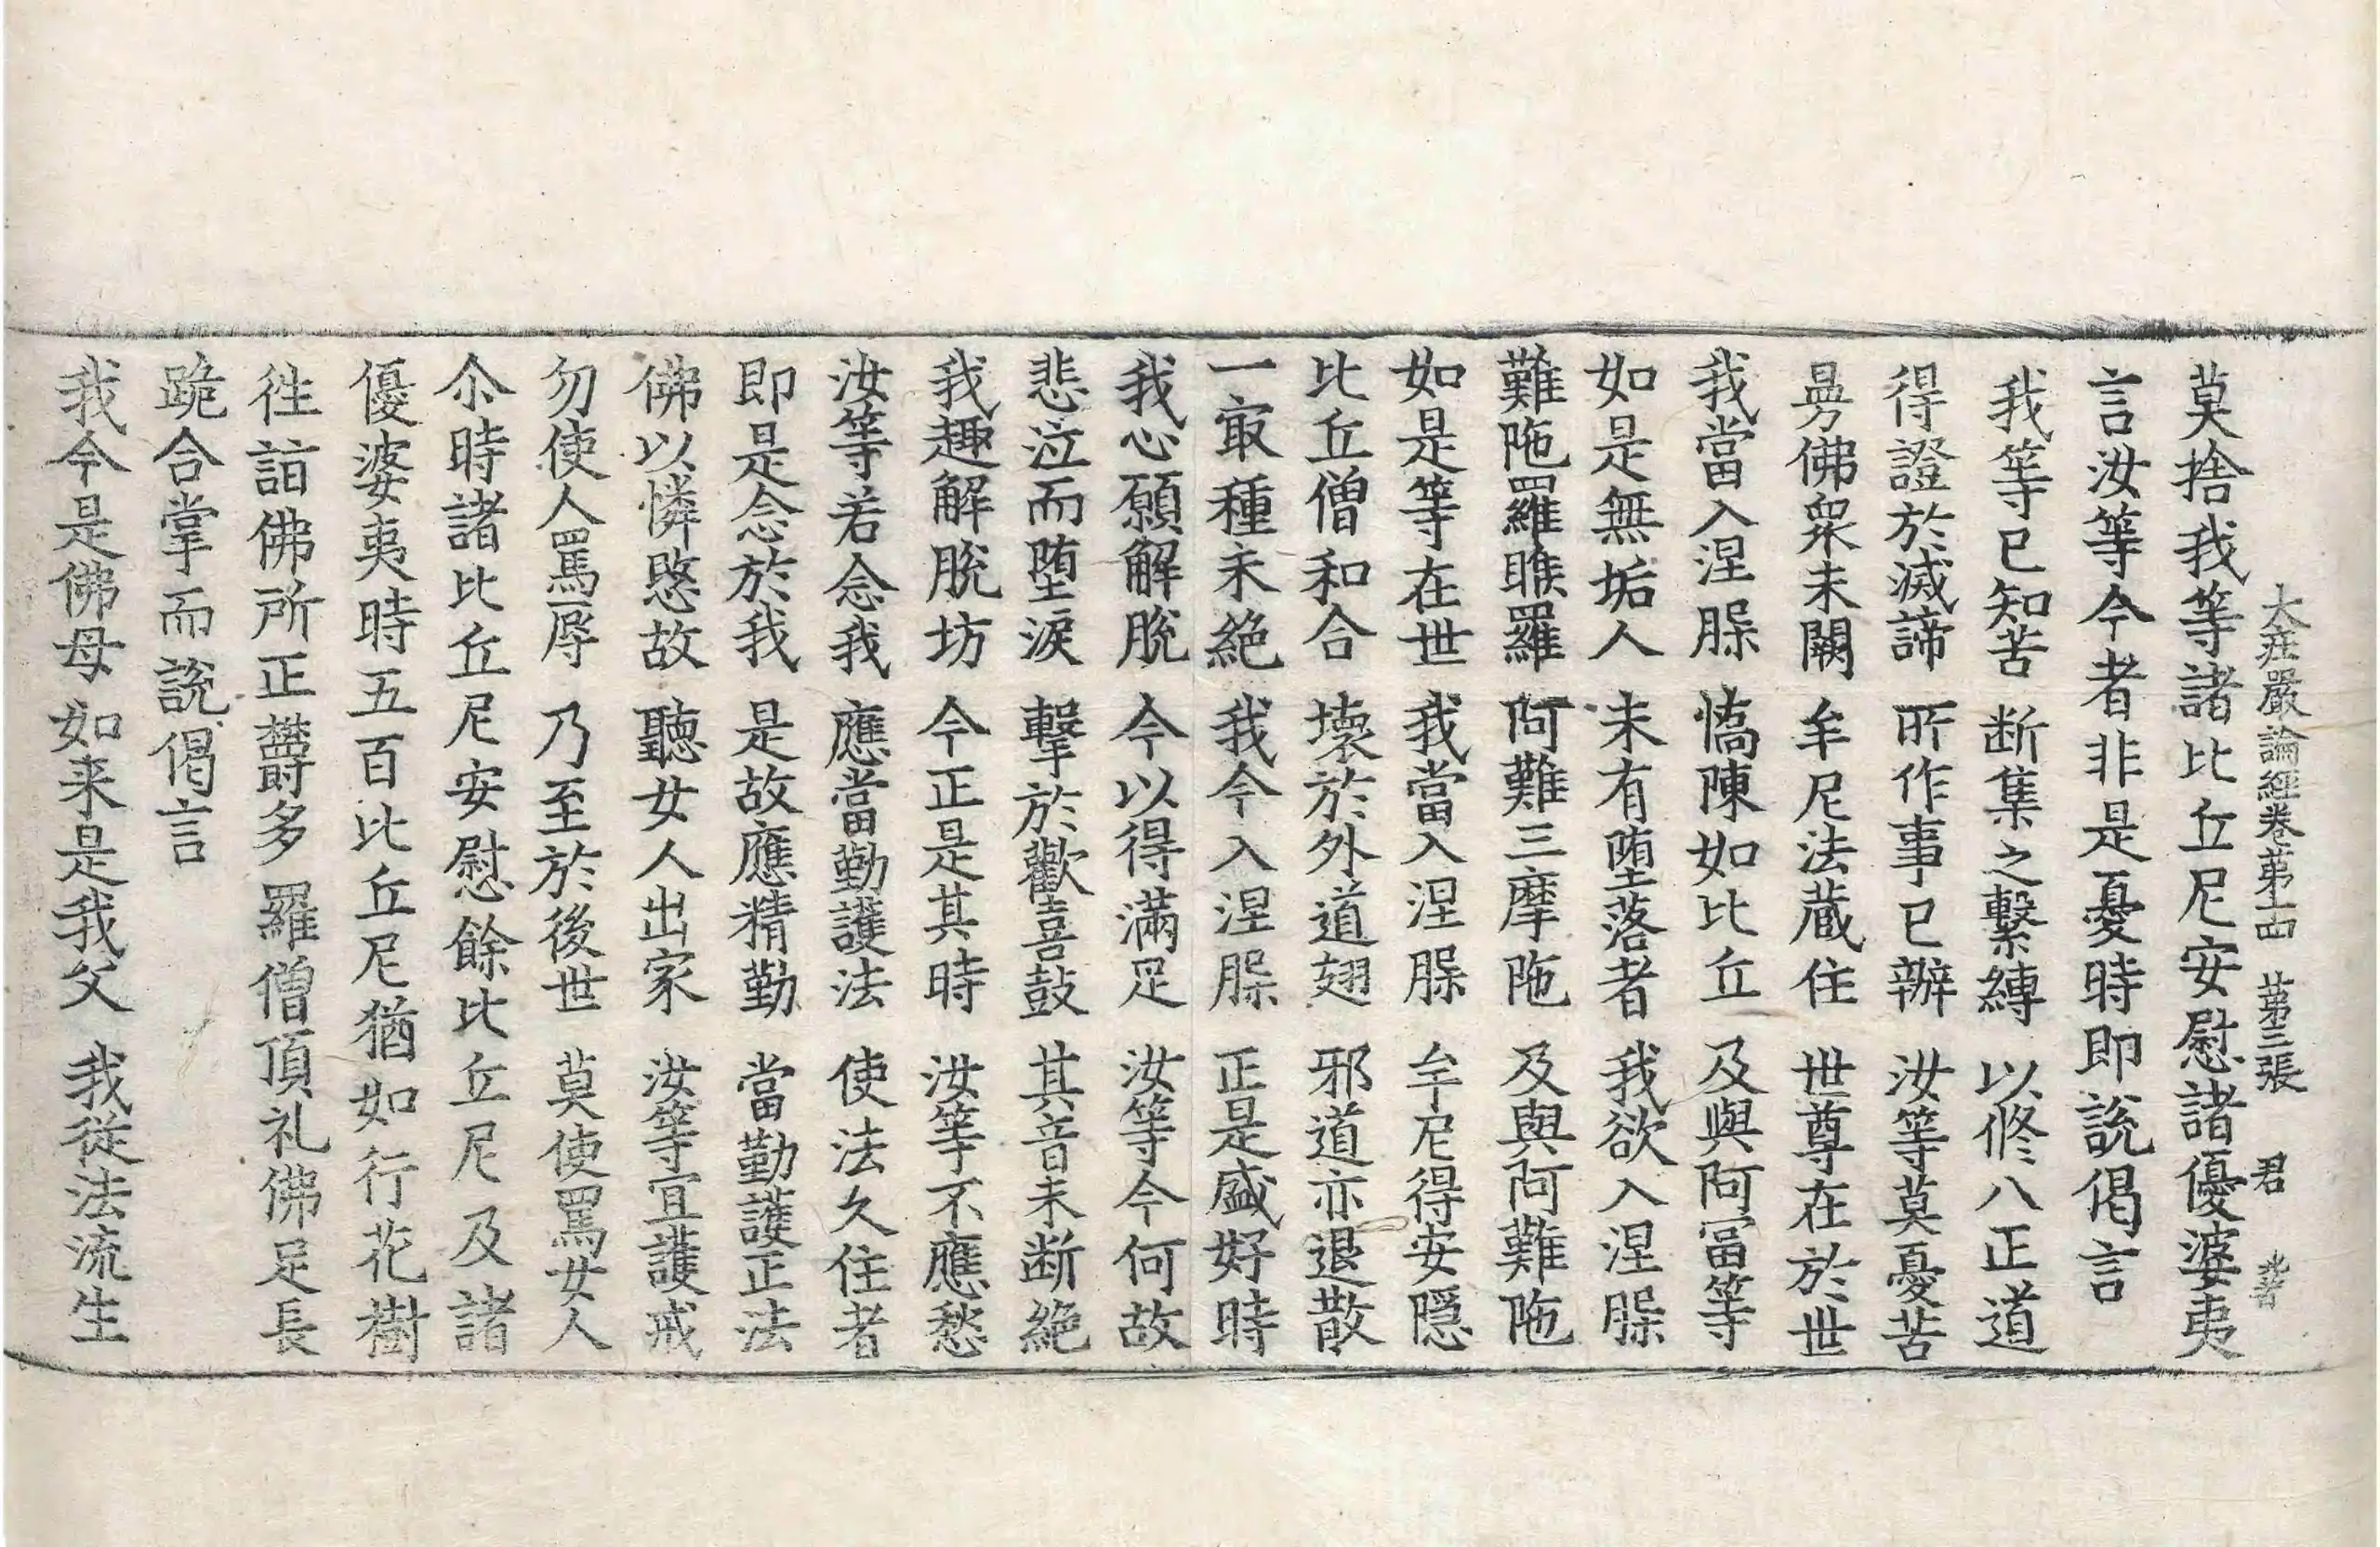 大疘嚴論經卷第十四　第三張　君
莫捨我等諸比丘尼安慰諸優婆夷
言汝等今者非是憂時即說偈言
我等已知苦　断集之繫縛　以修八正道
得證於滅諦　所作事已辦　汝等莫憂苦
曼佛衆未闕　牟尼法蔵住　世尊在於世
我當入涅槃　憍陳如比丘　及與阿冨等
如是無垢人　未有堕落者　我欲入涅槃
難陁羅睺羅　阿難三摩陁　及與阿難陁
如是等在世　我當入涅槃　牟尼得安隱
比丘僧和合　壞於外道翅　邪道亦退散
一㝡種未絕　我今入涅槃　正是盛好時
我心願解脫　今以得滿足　汝等今何故
悲泣而堕淚　擊於歡喜鼓　其音未断絕
我趣解脫坊　今正是其時　汝等不應愁
汝等若念我　應當勤護法　使法久住者
即是念於我　是故應精勤　當勤護正法
佛以憐愍故　聽女人出家　汝等宜護戒
勿使人罵辱　乃至於後世　莫使罵女人
尒時諸比丘尼安慰餘比丘尼及諸
優婆夷時五百比丘尼猶如行花樹
徃詣佛所正欝多羅僧頂礼佛足長
跪合掌而說偈言
我今是佛母　如来是我父　我従法流生